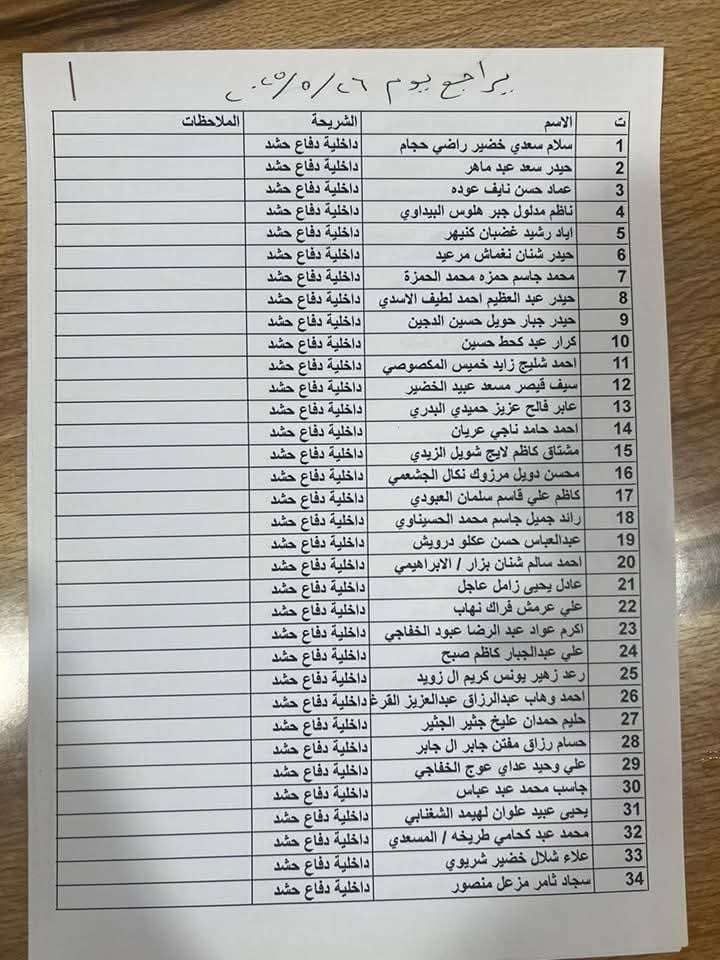 يراجع يوم ٢٠٢٥/٥/٢٦
ت الاسم الشريحة الملاحظات
1 سلام سعدي خضير راضي حجام داخلية دفاع حشد
2 حيدر سعد عبد ماهر داخلية دفاع حشد
3 عماد حسن نايف عوده داخلية دفاع حشد
4 ناظم مدلول جبر هلوس البيداوي داخلية دفاع حشد
5 اياد رشيد غضبان كنيهر داخلية دفاع حشد
6 حيدر شنان نغماش مرعيد داخلية دفاع حشد
7 محمد جاسم حمزه محمد الحمزة داخلية دفاع حشد
8 حيدر عبد العظيم احمد لطيف الاسدي داخلية دفاع حشد
9 حيدر جبار حويل حسين الدجين داخلية دفاع حشد
10 كرار عبد كحط حسين داخلية دفاع حشد
11 احمد شليج زايد خميس المكصوصي داخلية دفاع حشد
12 سيف قيصر مسعد عبيد الخضير داخلية دفاع حشد
13 عابر فالح عزيز حميدي البدري داخلية دفاع حشد
14 احمد حامد ناجي عريان داخلية دفاع حشد
15 مشتاق كاظم لايج شويل الزيدي داخلية دفاع حشد
16 محسن دويل مرزوك نكال الجشعمي داخلية دفاع حشد
17 كاظم علي قاسم سلمان العبودي داخلية دفاع حشد
18 رائد جميل جاسم محمد الحسيناوي داخلية دفاع حشد
19 عبدالعباس حسن عكلو درويش داخلية دفاع حشد
20 احمد سالم شنان بزار / الابراهيمي داخلية دفاع حشد
21 عادل يحيى زامل عاجل داخلية دفاع حشد
22 علي عرمش فراك نهاب داخلية دفاع حشد
23 اكرم عواد عبد الرضا عبود الخفاجي داخلية دفاع حشد
24 علي عبدالجبار كاظم صبح داخلية دفاع حشد
25 رعد زهير يونس كريم ال زويد داخلية دفاع حشد
26 احمد وهاب عبدالرزاق عبدالعزيز القرغ داخلية دفاع حشد
27 حليم حمدان عليخ جثير الجثير داخلية دفاع حشد
28 حسام رزاق مفتن جابر ال جابر داخلية دفاع حشد
29 علي وحيد عداي عوج الخفاجي داخلية دفاع حشد
30 جاسب محمد عبد عباس داخلية دفاع حشد
31 يحيى عبيد علوان لهيمد الشغنابي داخلية دفاع حشد
32 محمد عبد كحامي طريخه / المسعدي داخلية دفاع حشد
33 علاء شلال خضير شريوي داخلية دفاع حشد
34 سجاد ثامر مزعل منصور داخلية دفاع حشد